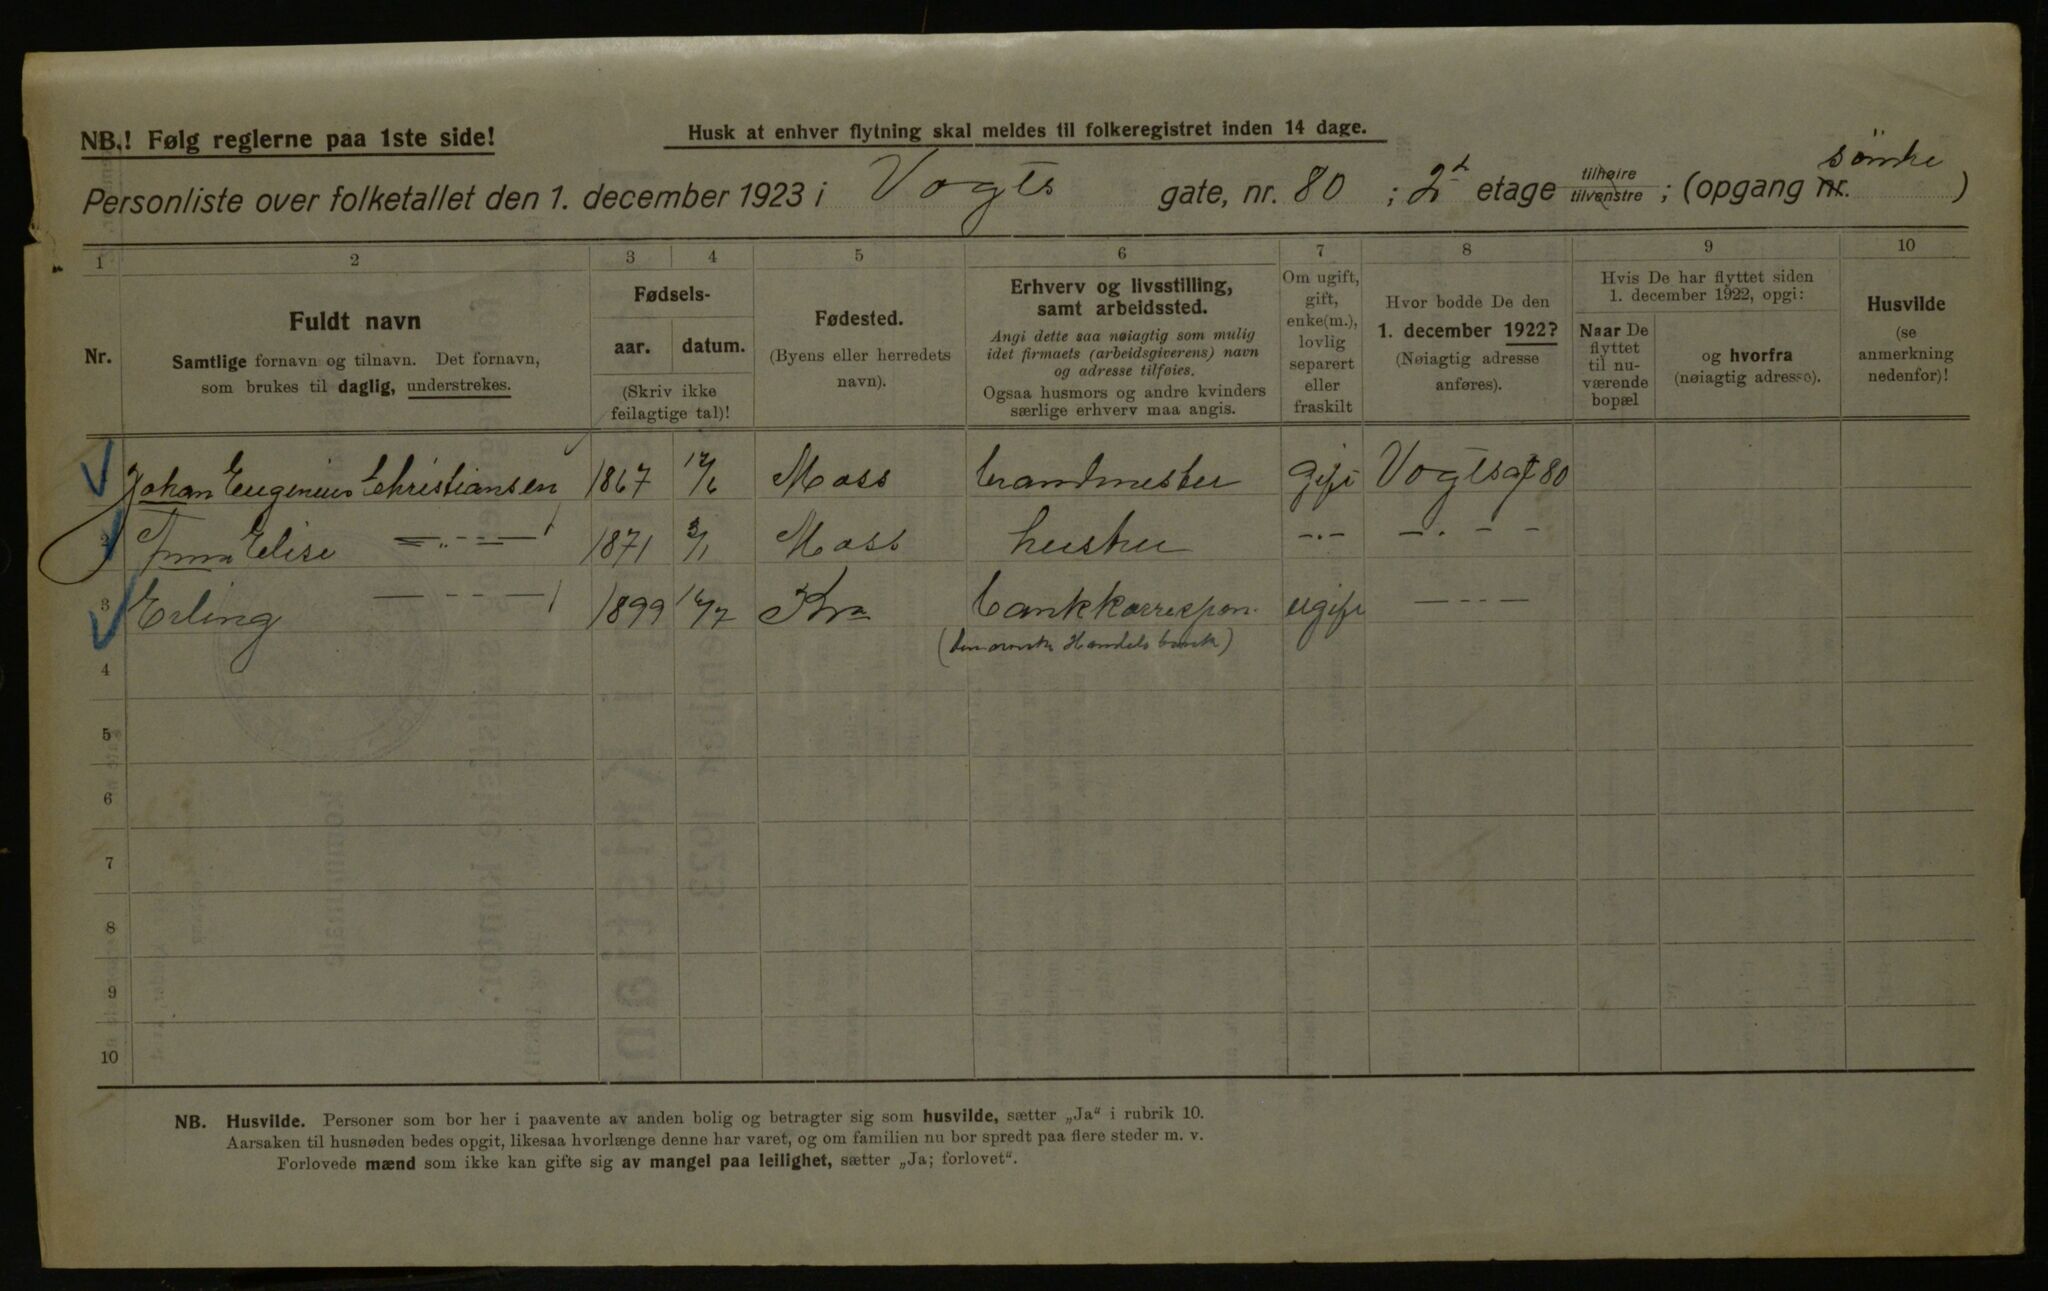 NB.! Følg reglerne paa 1ste side!
Husk at enhver flytning skal meldes til folkeregistret inden 14 dage.
Personliste over folketallet den 1. december 1923 i Vogts gate, nr. 80 ; 2 etage tilhøire tilvenstre ; (opgang nr. )
1 2 3 4 5 6 7 8 9 10
Nr.
Fuldt navn
Samtlige fornavn og tilnavn. Det fornavn,
som brukes til daglig, understrekes.
Fødsels-
aar. datum.
(Skriv ikke
feilagtige tal)!
Fødested.
(Byens eller herredets
navn).
Erhverv og livsstilling,
samt arbeidssted.
Angi dette saa nøiagtig som mulig
idet firmaets (arbeidsgiverens) navn
og adresse tilføies.
Ogsaa husmors og andre kvinders
særlige erhverv maa angis.
Om ugift,
gift,
enke(m.),
lovlig
separert
eller
fraskilt
Hvor bodde De den
1. december 1922?
(Nøiagtig adresse
anføres).
Hvis De har flyttet siden
1. december 1922, opgi:
Naar De
flyttet
til nu-
værende
bopæl
og hvorfra
(nøiagtig adresse).
Husvilde
(se
anmerkning
nedenfor)!
Johan Eugenius Christiansen 1867 Moss brandmester gift Vogtsgt 80
2 Anna Elise 1871 Moss hustru
3 Erling 1899 Kra bankkorrespon. ugift
( Handelsbank)
4
5
6
7
8
9
10
NB. Husvilde. Personer som bor her i paavente av anden bolig og betragter sig som husvilde, sætter „Ja“ i rubrik 10.
Aarsaken til husnøden bedes opgit, likesaa hvorlænge denne har varet, og om familien nu bor spredt paa flere steder m. v.
Forlovede mænd som ikke kan gifte sig av mangel paa leilighet, sætter „Ja; forlovet“.